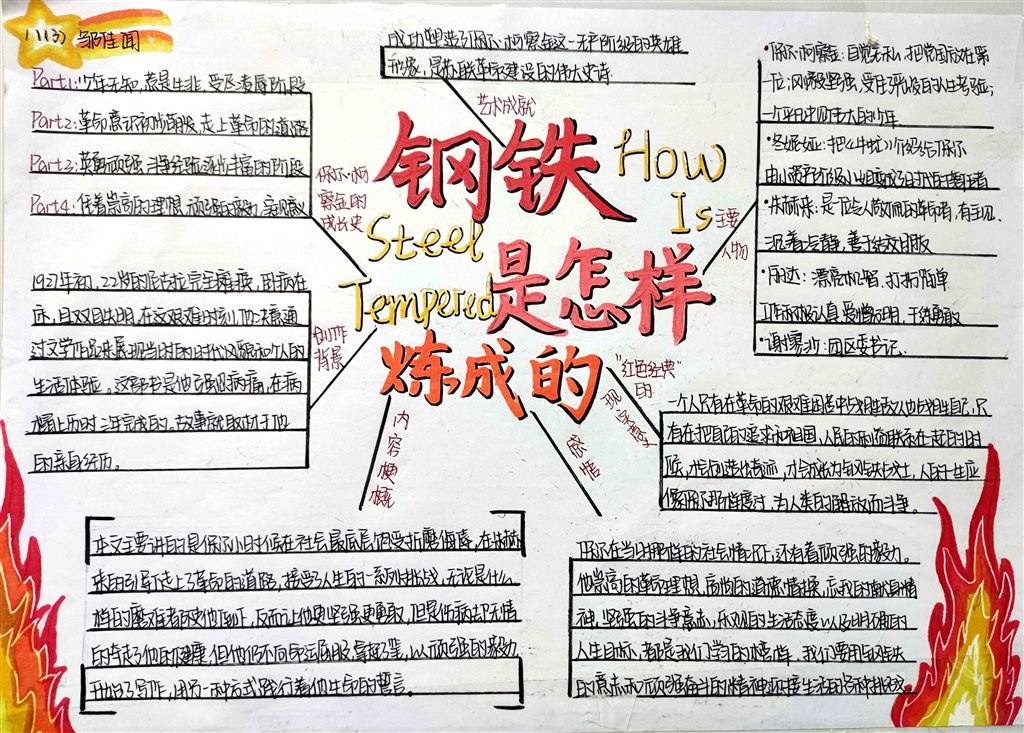 八(13) 邹佳闻
Part1:少年无知,惹是生非,受尽凌辱阶段
Part2:革命意识初步萌发,走上革命的道路
Part3:英勇顽强,斗争经验逐步丰富的阶段
Part4:凭着崇高的理想,顽强毅力,实现
保尔·柯
察金的
成长史
成功塑造了保尔·柯察金这一无产阶级的英雄
形象,是苏联革命建设的伟大史诗
艺术成就
钢铁
How
Is
Steel
Tempered
是怎样
炼成的
主要
人物
·保尔·柯察金:自觉无私,把党国放在第
位;刚毅坚强,受住了严峻的人生考验;
一个平凡中见伟大的少年
·冬妮娅:把《牛虻》介绍给了保尔
由小资产阶级小姐变成了旧时代的牺牲者
·朱赫来:是个给人敬佩的革命者,有主见,
沉着冷静,善于结交朋友
·丽达:漂亮机智,打扮简单
工作时极认真,爱憎分明,干练勇敢
·谢廖沙:西区委书记.
1927年初,22岁的尼古拉完全瘫痪,卧病在
床,且双目失明,在这艰难时刻,他决意通
过文学作品来展现当时的时代风貌和个人的
生活体验。这部书是他已强忍病痛,在病
榻上历时三年完成的。故事就取材于他
的亲身经历。
创作
背景
内容梗概
感悟
"红色经典"
的
现实意义
一个人只有在革命的艰难困苦中战胜敌人也战胜自己,只
有在把自己的追求和祖国,人民的利益联系在一起的时
候,才会创造出奇迹,才会成长为钢铁战士,人的一生应
像保尔那样度过,为人类的解放而斗争。
本文主要讲的是保尔小时候在社会最底层饱受折磨侮辱,在朱赫
来的引导下走上了革命的道路,接受了人生的一系列挑战,无论是什么
样的磨难者没使他倒下,反而让他更坚强更勇敢,但是伤病却无情
的夺去了他的健康,但他仍不向命运屈服,拿起了笔,以顽强的毅力
开始了写作,用另一种方式践行着他生命的誓言。
保尔在当时那样的社会情况下,还有着顽强的毅力。
他崇高的革命理想,高尚的道德情操,忘我的献身精
神,坚强的斗争意志,乐观的生活态度以及明确的
人生目标,都是我们学习的榜样,我们要用钢铁
的意志和顽强奋斗的精神迎接生活的各种挑战。